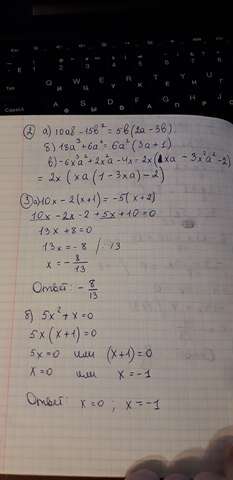 ② а) 10аб - 15б² = 5б(2а - 3б)
б) 18а³ + 6а² = 6а²(3а + 1)
в) -6x³a² + 2x²a - 4x = 2x(xa - 3x²a² - 2)
= 2x(xa(1 - 3xa) - 2)
③ а) 10x - 2(x+1) = -5(x+2)
10x - 2x - 2 + 5x + 10 = 0
13x + 8 = 0
13x = -8 /: 13
x = -8/13
Ответ: -8/13
б) 5x² + x = 0
5x(x+1) = 0
5x = 0 или (x+1) = 0
x = 0 или x = -1
Ответ: x = 0 ; x = -1